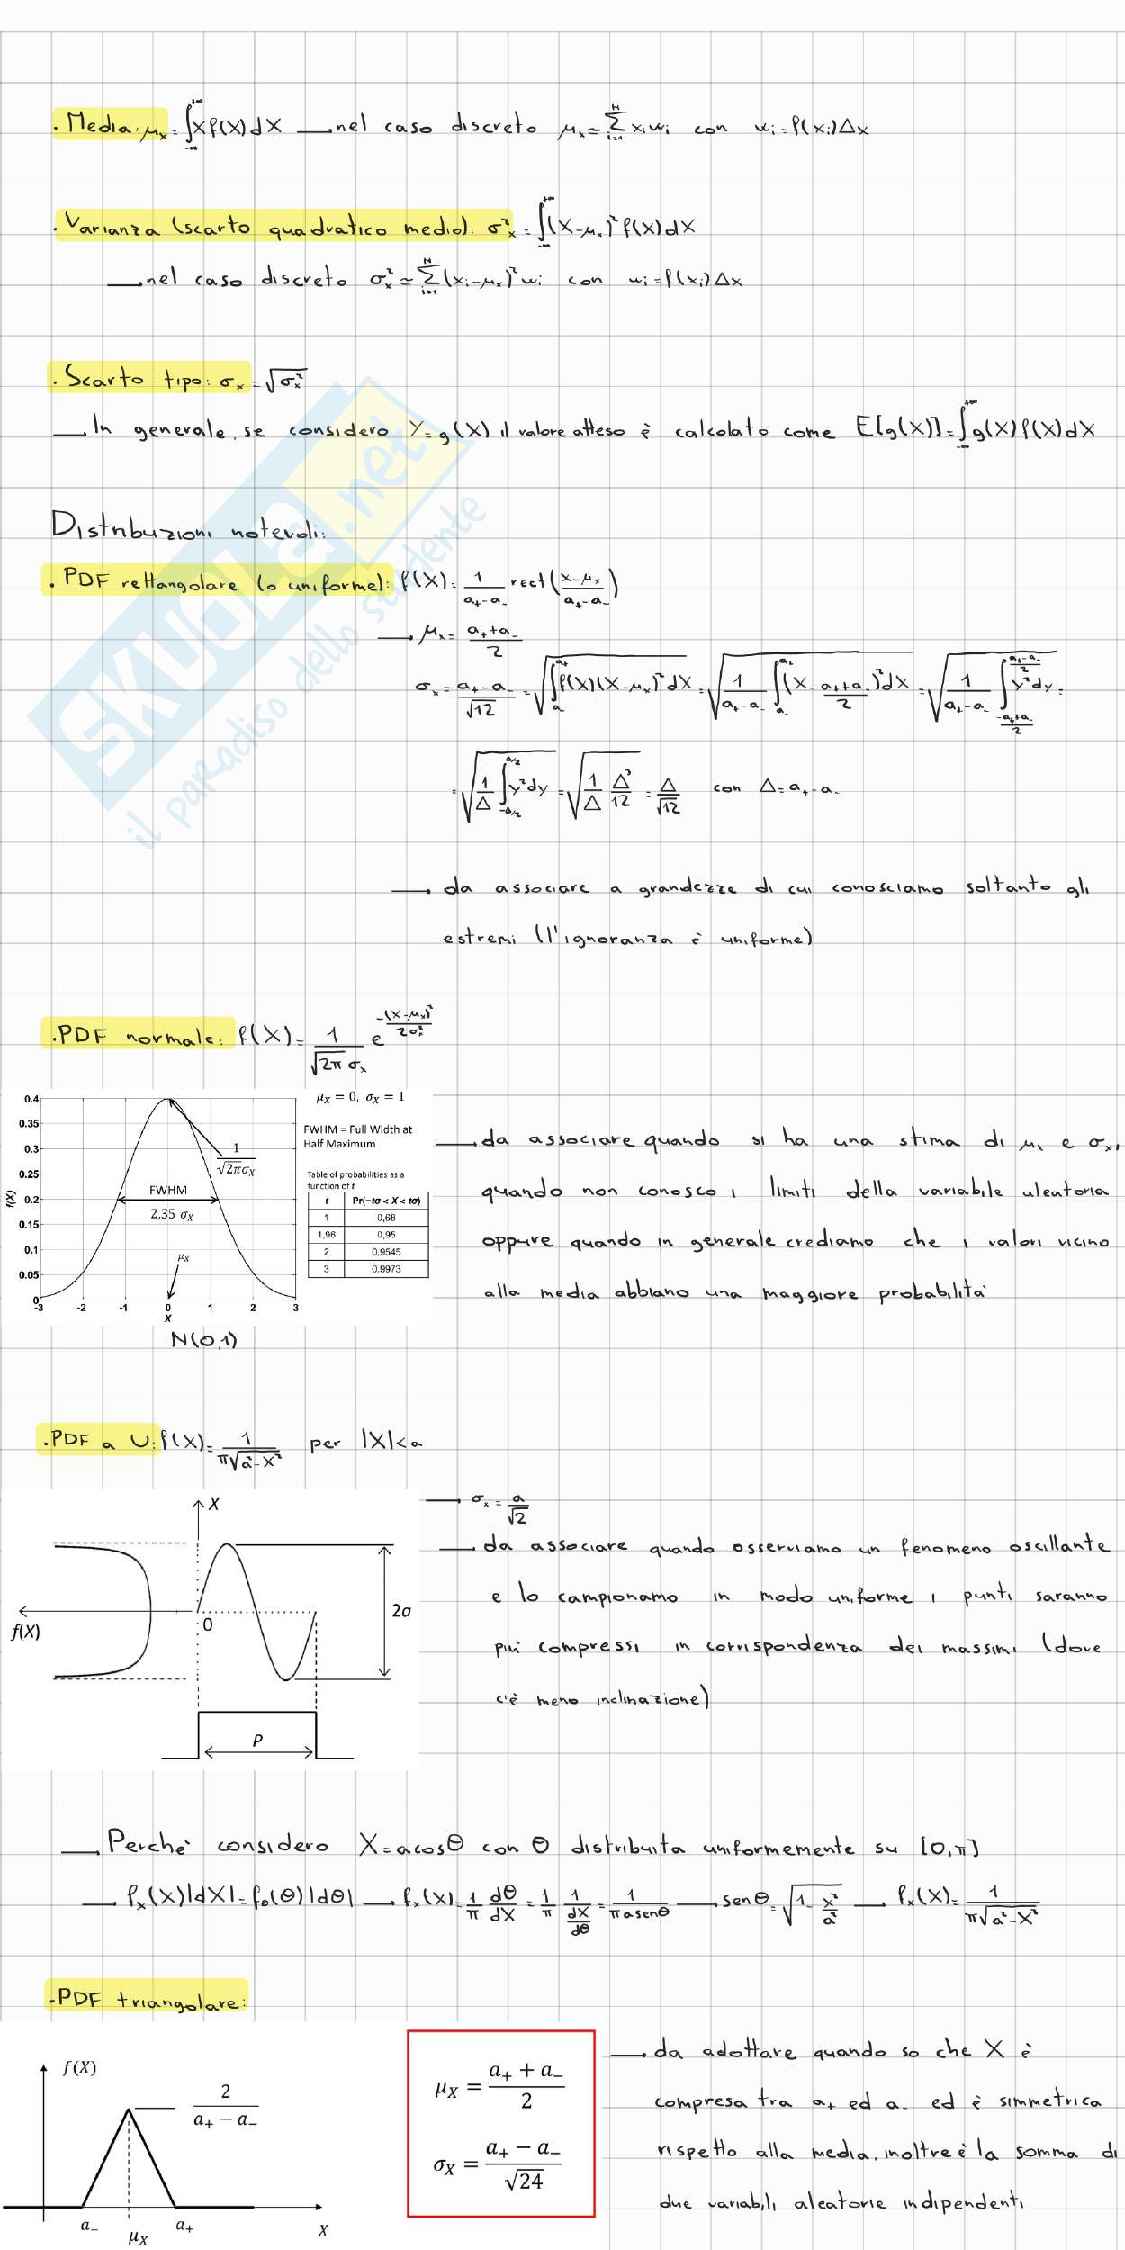 . Media: μx = ∫_{-∞}^{+∞} X f(X) dX → nel caso discreto μx = Σ_{i=1}^{N} xi wi con wi = f(xi)Δx
. Varianza (scarto quadratico medio): σ²x = ∫_{-∞}^{+∞} (X-μx)² f(X) dX
→ nel caso discreto σx² ≃ Σ_{i=1}^{N} (xi-μx)² wi con wi = f(xi)Δx
. Scarto tipo: σx = √σx²
→ In generale, se considero Y=g(X) il valore atteso è calcolato come E[g(X)] = ∫_{-∞}^{+∞} g(X) f(X) dX
Distribuzioni notevoli:
. PDF rettangolare (o uniforme): f(X) = 1/(a+ - a-) rect((x-μx)/(a+ - a-))
→ μx = (a+ + a-)/2
σx = (a+ - a-)/√12 = √(∫_{a-}^{a+} f(X)(X-μx)² dX) = √(1/(a+ - a-) ∫_{a-}^{a+} (X - (a+ + a-)/2)² dX) = √(1/(a+ - a-) ∫ y² dy) =
= √(1/Δ ∫_{-Δ/2}^{Δ/2} y² dy) = √(1/Δ Δ³/12) = Δ/√12 con Δ = a+ - a-
→ da associare a grandezze di cui conosciamo soltanto gli
estremi (l'ignoranza è uniforme)
SKUOLA.net
il paradiso dello studente
. PDF normale: f(X) = 1/(√2π σx) e^{-(X-μx)²/2σx²}
μX = 0, σX = 1
FWHM = Full Width at
Half Maximum
Table of probabilities as a
function of t
t Pr(−tσ < X < tσ)
1 0,68
1,96 0,95
2 0.9545
3 0.9973
0.4
0.35
0.3
0.25
0.2
0.15
0.1
0.05
0
f(X)
1/(√2π σX)
FWHM
2.35 σX
μX
-3 -2 -1 0 1 2 3
X
N(0,1)
→ da associare quando si ha una stima di μx e σx,
quando non conosco i limiti della variabile aleatoria
oppure quando in generale crediamo che i valori vicino
alla media abbiano una maggiore probabilità
. PDF a U: f(X) = 1/(π√(a²-X²)) per |X|<a
X
f(X)
0
2a
P
→ σx = a/√2
→ da associare quando osserviamo un fenomeno oscillante
e lo campionamo in modo uniforme i punti saranno
più compressi in corrispondenza dei massimi (dove
c'è meno inclinazione)
→ Perchè considero X = a cosθ con θ distribuita uniformemente su [0,π]
→ fx(X)|dX| = fθ(θ)|dθ| → fx(X) = 1/π dθ/dX = 1/π 1/(dX/dθ) = 1/(π a senθ) → senθ = √(1 - X²/a²) → fx(X) = 1/(π√(a²-X²))
- PDF triangolare:
f(X)
2/(a+ − a−)
a− μX a+ X
μX = (a+ + a−)/2
σX = (a+ − a−)/√24
→ da adottare quando so che X è
compresa tra a+ ed a- ed è simmetrica
rispetto alla media, inoltre è la somma di
due variabili aleatorie indipendenti